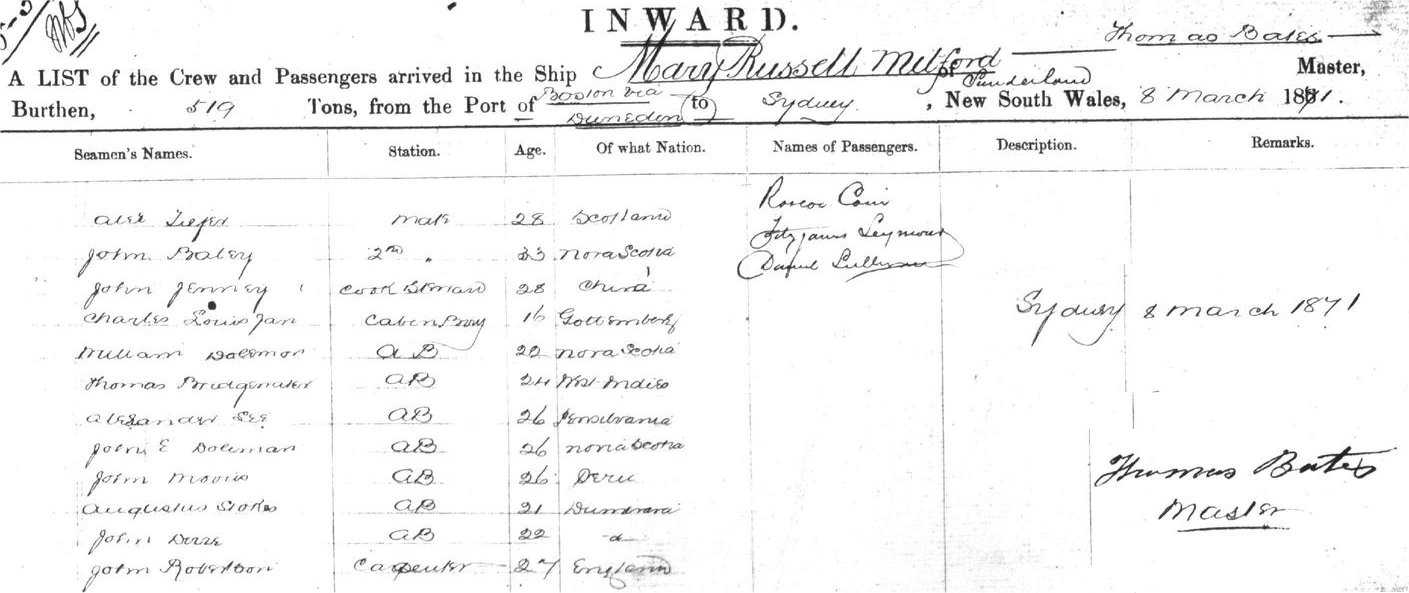 INWARD.
Thomas Bates
A LIST of the Crew and Passengers arrived in the Ship Mary Russell Mitford of Sunderland Master,
Burthen, 519 Tons, from the Port of Boston via Dunedin to Sydney, New South Wales, 8 March 1871.
Seamen's Names. Station. Age. Of what Nation. Names of Passengers. Description. Remarks.
Roscoe
Alex mate 28 Scotland
Fitzjames Seymour
John Baley 2nd " 33 Nova Scotia
Daniel Sullivan
John Jenney Cook Steward 28 China
Charles Louis Jan Cabin Boy 16 Gottemberg
Sydney 8 March 1871
William Doleman AB 22 Nova Scotia
Thomas Bridgewater AB 24 West Indies
Alexander Lee AB 26 Pensilvania
John E Doleman AB 26 Nova Scotia
John AB 26 Peru
Thomas Bates
Augustus Stokes AB 21
Master
John AB 22
John Robertson Carpenter 27 England